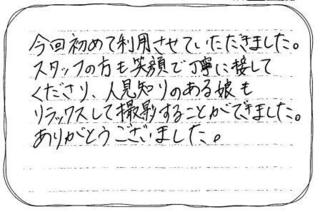 今回初めて利用させていただきました。
スタッフの方も笑顔で丁寧に接して
くださり、人見知りのある娘も
リラックスして撮影することができました。
ありがとうございました。